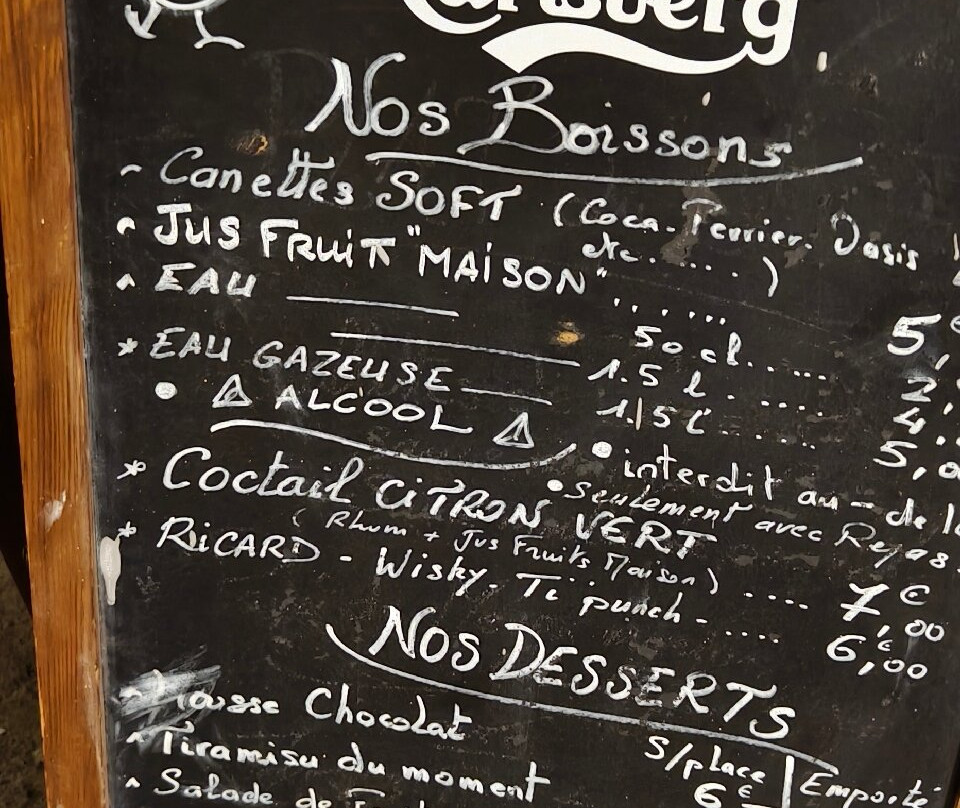 Carlsberg
Nos Boissons
- Canettes SOFT (Coca. Perrier. Oasis
etc...... )
- JUS FRUIT "MAISON" ...... 5,
- EAU 50 cl...... 2,
1.5 l ..... 4,
* EAU GAZEUSE 1,5 l ..... 5,0
• ⚠ ALCOOL ⚠
• interdit au-de
• Seulement avec Repas
* Coctail CITRON VERT
(Rhum + Jus Fruits Maison) .... 7,00 €
* RICARD - Wisky. Ti punch - .... 6,00 €
NOS DESSERTS
S/place | Emporté
- Mousse Chocolat
- Tiramisu du moment 6 €
- Salade de